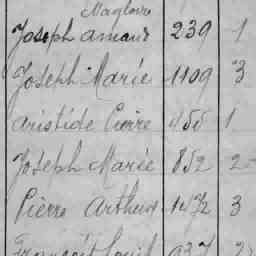 Magloire
Joseph Amand 239 1
Joseph Marie 1109 3
Aristide Pierre 455 1
Joseph Marie 852 2
Pierre Arthur 1472 3
François Louis 937 2